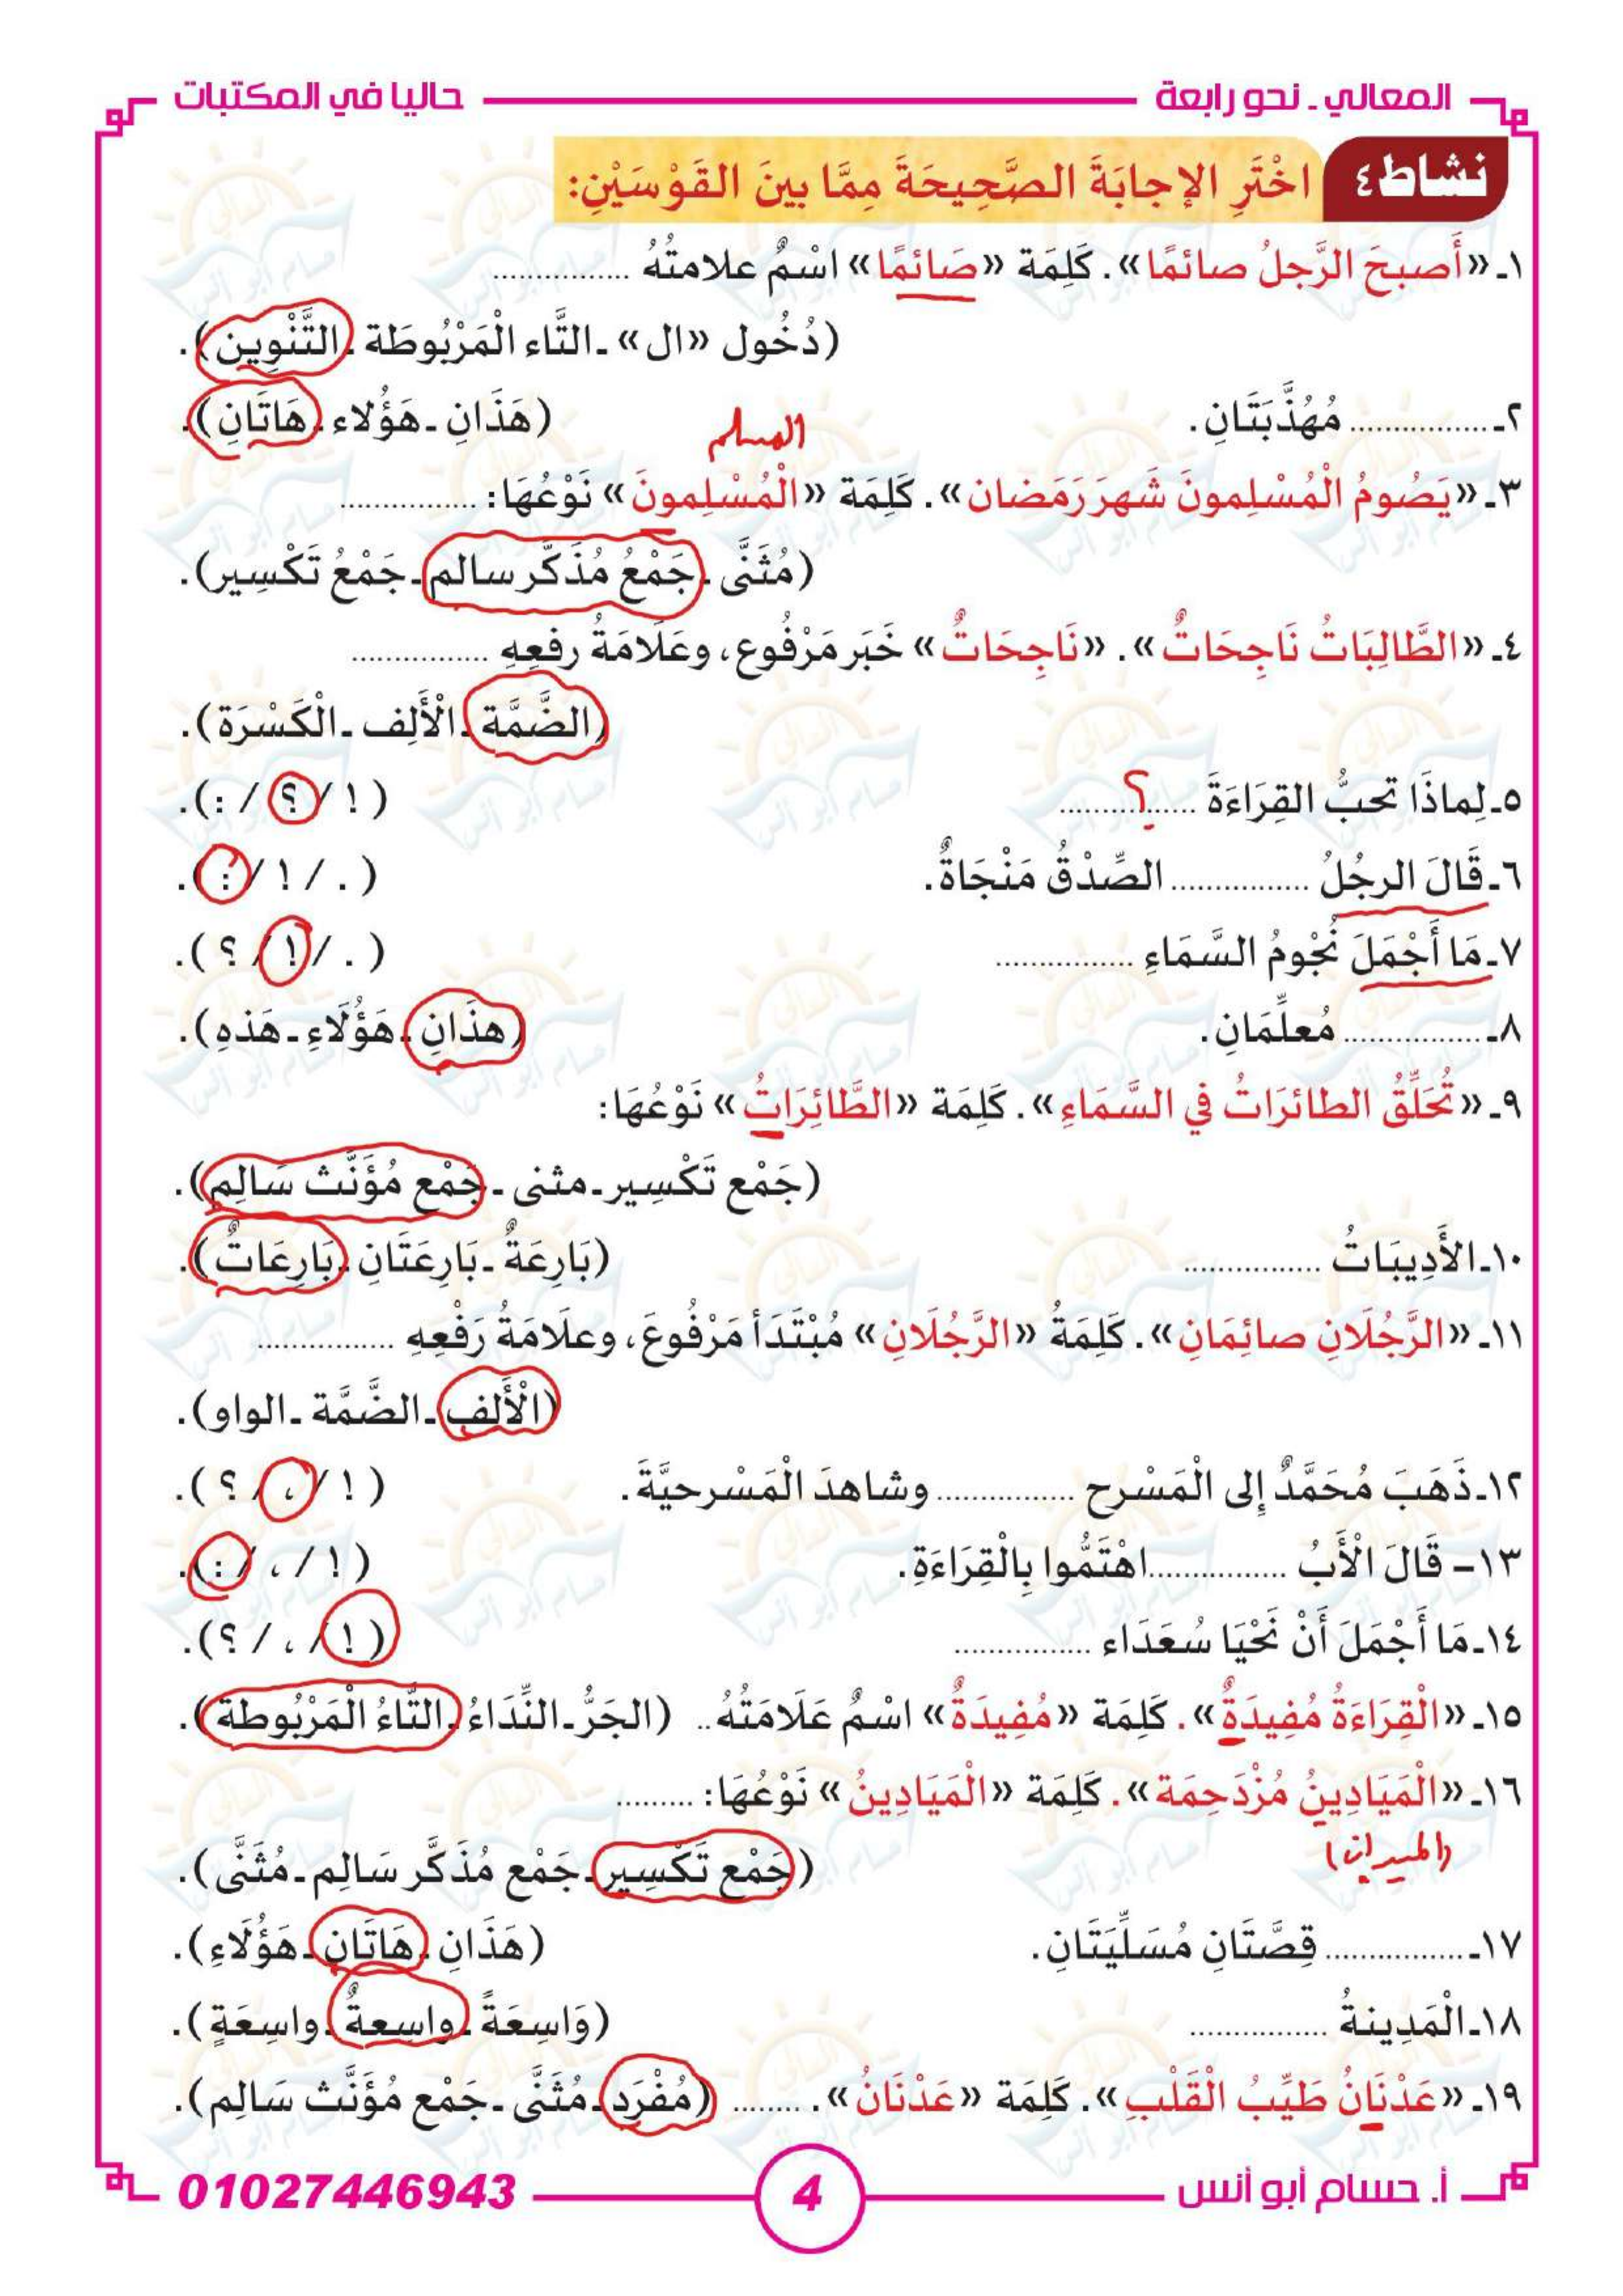 المعالي ـ نحو رابعة
حاليا في المكتبات
نشاط ٤ اخْتَرِ الإجابَةَ الصَّحِيحَةَ مِمَّا بينَ القَوْسَيْنِ:
١ـ «أَصبحَ الرَّجلُ صائمًا». كَلِمَة «صَائمًا» اسْمٌ علامتُهُ ................
(دُخُول «ال» ـ التَّاء الْمَرْبُوطَة ـ التَّنْوِين).
٢ـ ................ مُهُذَّبَتَانِ. (هَذَانِ ـ هَؤُلاء ـ هَاتَانِ).
المسلم
٣ـ «يَصُومُ الْمُسْلِمونَ شَهرَ رَمَضان». كَلِمَة «الْمُسْلِمونَ» نَوْعُهَا: ................
(مُثَنَّى ـ جَمْعُ مُذَكَّر سالم ـ جَمْعُ تَكْسِير).
٤ـ «الطَّالِبَاتُ نَاجِحَاتٌ». «نَاجِحَاتٌ» خَبَر مَرْفُوع، وعَلَامَةُ رفعِهِ ................
(الضَّمَّة ـ الْأَلِف ـ الْكَسْرَة).
٥ـ لِماذَا تحبُّ القِرَاءَةَ ................ ؟ ( ! / ؟ / : ).
٦ـ قَالَ الرجُلُ ................ الصِّدْقُ مَنْجَاةٌ. ( . / ! / : ).
٧ـ مَا أَجْمَلَ نُجْومُ السَّمَاءِ ................ ( . / ! / ؟ ).
٨ـ ................ مُعلِّمَانِ. (هذَانِ ـ هَؤُلَاءِ ـ هَذهِ).
٩ـ «تُحَلِّقُ الطائرَاتُ في السَّمَاءِ». كَلِمَة «الطَّائِرَاتُ» نَوْعُهَا:
(جَمْع تَكْسِير ـ مثنى ـ جَمْع مُؤَنَّث سَالِم).
١٠ـ الأَدِيبَاتُ ................ (بَارِعَةٌ ـ بَارِعَتَانِ ـ بَارِعَاتٌ).
١١ـ «الرَّجُلَانِ صائِمَانِ». كَلِمَةُ «الرَّجُلَانِ» مُبْتَدَأ مَرْفُوعَ، وعلَامَةُ رَفْعِهِ ................
(الْأَلِف ـ الضَّمَّة ـ الواو).
١٢ـ ذَهَبَ مُحَمَّدٌ إلى الْمَسْرح ................ وشاهدَ الْمَسْرحيَّةَ. ( ! / ، / ؟ ).
١٣ـ قَالَ الْأَبُ ................ اهْتَمُّوا بِالْقِرَاءَةِ. ( ! / ، / : ).
١٤ـ مَا أَجْمَلَ أَنْ نَحْيَا سُعَدَاء ................ ( ! / ، / ؟ ).
١٥ـ «الْقِرَاءَةُ مُفِيدَةٌ». كَلِمَة «مُفِيدَةٌ» اسْمٌ عَلَامَتُهُ .. (الجَرُّ ـ النِّدَاءُ ـ التَّاءُ الْمَرْبُوطة).
١٦ـ «الْمَيَادِينُ مُزْدَحِمَة». كَلِمَة «الْمَيَادِينُ» نَوْعُهَا: .........
(الميدان)
(جَمْع تَكْسِير ـ جَمْع مُذَكَّر سَالِم ـ مُثَنَّى).
١٧ـ ................ قِصَّتَانِ مُسَلِّيَتَانِ. (هَذَانِ ـ هَاتَانِ ـ هَؤُلَاءِ).
١٨ـ الْمَدِينةُ ................ (وَاسِعَةً ـ واسِعةٌ ـ واسِعَةٍ).
١٩ـ «عَدْنَانُ طَيِّبُ الْقَلْبِ». كَلِمَة «عَدْنَانُ». ........ (مُفْرَد ـ مُثَنَّى ـ جَمْع مُؤَنَّث سَالِم).
أ. حسام أبو أنس
4
01027446943